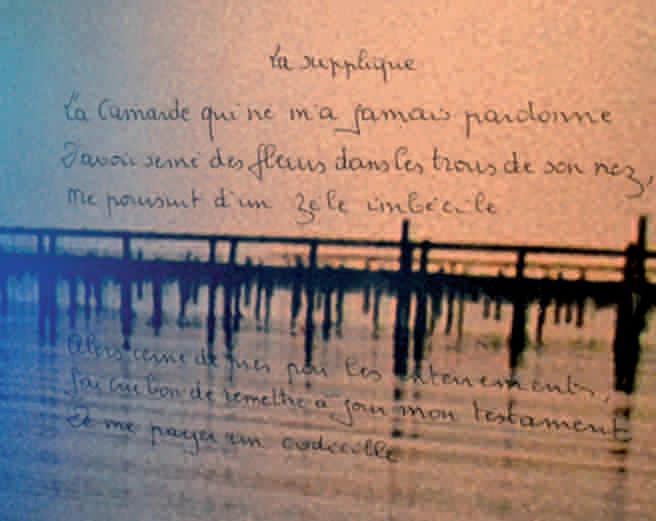 La supplique
La Camarde qui ne m'a jamais pardonné
D'avoir semé des fleurs dans les trous de son nez,
Me poursuit d'un zèle imbécile
Alors cerné de près par les enterrements,
J'ai cru bon de remettre à jour mon testament
De me payer un codicille